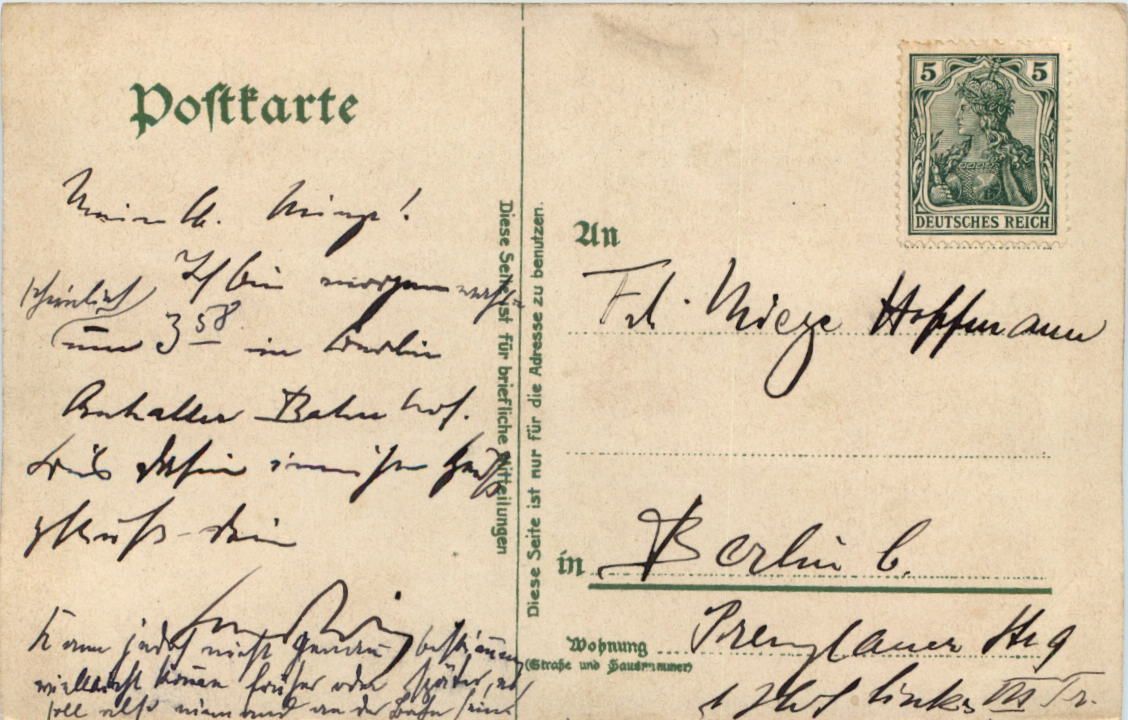 Postkarte
Mein l. Mieze!
Ich bin morgen wahr-
scheinlich
um 3 58 in Berlin
Anhalter Bahnhof.
Bis dahin innigen
Gruß Dein
Kann jedoch nicht genau bestimmen
vielleicht komme früher oder später, es
soll also niemand an der Bahn sein.
Diese Seite ist für briefliche Mitteilungen
Diese Seite ist nur für die Adresse zu benutzen.
5 5
DEUTSCHES REICH
An
Frl. Mieze Hoffmann
in Berlin C.
Wohnung Prenzlauer Str 9
(Straße und Hausnummer)
1 Hof links III Tr.